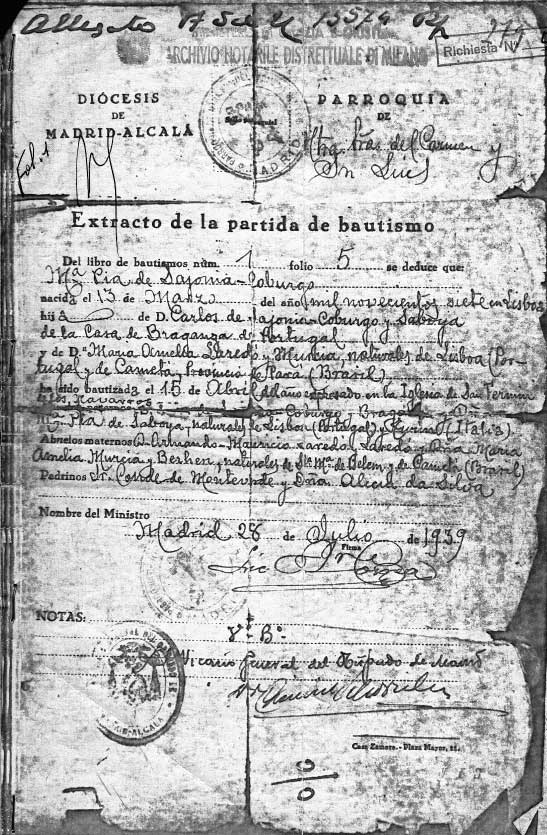 Allegato A S al N 15574
ARCHIVIO NOTARILE DISTRETTUALE DI MILANO
Richiesta N.
DIÓCESIS
DE
MADRID-ALCALÁ
PARROQUIA
DE
Ntra. Sra. del Carmen y
Sn Luis
Fol. 1
Extracto de la partida de bautismo
Del libro de bautismos núm. 1 folio 5 se deduce que:
Mª Pia de Sajonia-Coburgo
nacida el 13 de Marzo del año mil novecientos siete en Lisboa
hija de D. Carlos de Sajonia-Coburgo y Saboya
de la Casa de Braganza de Portugal
y de D.ª Maria Amelia Laredo y Murcia, naturales de Lisboa (Por-
tugal y de Cameta, Provincia de Pará (Brasil)
ha sido bautizada el 15 de Abril del año expresado en la Iglesia de San Fermin
de los Navarros
Coburgo y Braganza y
Mª Pia de Saboya, naturales de Lisboa (Portugal) y Turin (Italia).
Abuelos maternos D. Armando-Mauricio Laredo y Laredo y Dña Maria
Amelia Murcia y Beshen, naturales de Sta Mª de Belem y de Cametá (Brasil)
Padrinos Sr. Conde de Monteverde y Dña. Alicia da Silva
Nombre del Ministro
Madrid 28 de Julio de 1939
Firma
NOTAS:
Vº Bº
Vicario General del Obispado de Madrid
MADRID-ALCALA
Casa Zamora.-Plaza Mayor, 21.